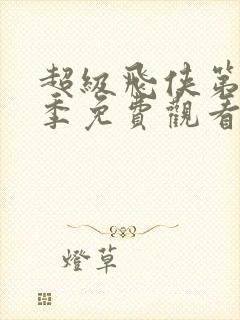 超級飛俠第
季免費觀看
燈草